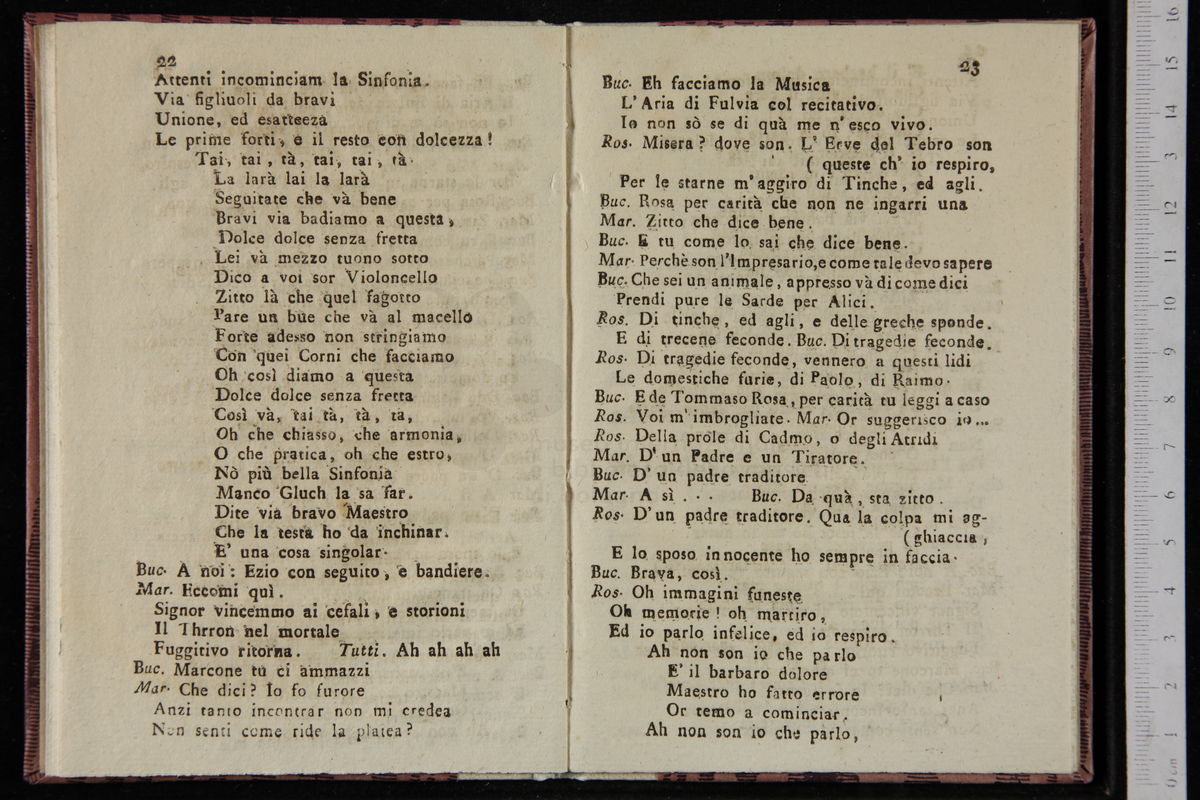 22
Attenti incominciam la Sinfonia.
Via figliuoli da bravi
Unione, ed esatteeza
Le prime forti, e il resto con dolcezza!
Tai, tai, tà, tai, tai, tà.
La larà lai la larà
Seguitate che và bene
Bravi via badiamo a questa,
Dolce dolce senza fretta
Lei và mezzo tuono sotto
Dico a voi sor Violoncello
Zitto là che quel fagotto
Pare un bue che và al macello
Forte adesso non stringiamo
Con quei Corni che facciamo
Oh così diamo a questa
Dolce dolce senza fretta
Così và, tai tà, tà, ta,
Oh che chiasso, che armonia,
O che pratica, oh che estro,
Nò più bella Sinfonia
Manco Gluch la sa far.
Dite via bravo Maestro
Che la testa ho da inchinar.
E' una cosa singolar.
Buc. A noi: Ezio con seguito, e bandiere.
Mar. Eccomi quì.
Signor vincemmo ai cefali, e storioni
Il Thrron nel mortale
Fuggitivo ritorna. Tutti. Ah ah ah ah
Buc. Marcone tu ci ammazzi
Mar. Che dici? Io fo furore
Anzi tanto incontrar non mi credea
Non senti come ride la platea?
23
Buc. Eh facciamo la Musica
L'Aria di Fulvia col recitativo.
Io non sò se di quà me n'esco vivo.
Ros. Misera? dove son. L' Erve del Tebro son
( queste ch' io respiro,
Per le starne m'aggiro di Tinche, ed agli.
Buc. Rosa per carità che non ne ingarri una
Mar. Zitto che dice bene.
Buc. E tu come lo sai che dice bene.
Mar. Perchè son l'Impresario, e come tale devo sapere
Buc. Che sei un animale, appresso và di come dici
Prendi pure le Sarde per Alici.
Ros. Di tinche, ed agli, e delle greche sponde.
E di trecene feconde. Buc. Di tragedie feconde.
Ros. Di tragedie feconde, vennero a questi lidi
Le domestiche furie, di Paolo, di Raimo.
Buc. E de Tommaso Rosa, per carità tu leggi a caso
Ros. Voi m' imbrogliate. Mar. Or suggerisco io...
Ros. Della prole di Cadmo, o degli Atridi
Mar. D' un Padre e un Tiratore.
Buc. D' un padre traditore
Mar. A sì . . . Buc. Da quà, sta zitto.
Ros. D'un padre traditore. Qua la colpa mi ag-
(ghiaccia,
E lo sposo innocente ho sempre in faccia.
Buc. Brava, così.
Ros. Oh immagini funeste
Oh memorie! oh martiro,
Ed io parlo infelice, ed io respiro.
Ah non son io che parlo
E' il barbaro dolore
Maestro ho fatto errore
Or temo a cominciar.
Ah non son io che parlo,
0 cm 1 2 3 4 5 6 7 8 9 10 11 12 13 14 15 16